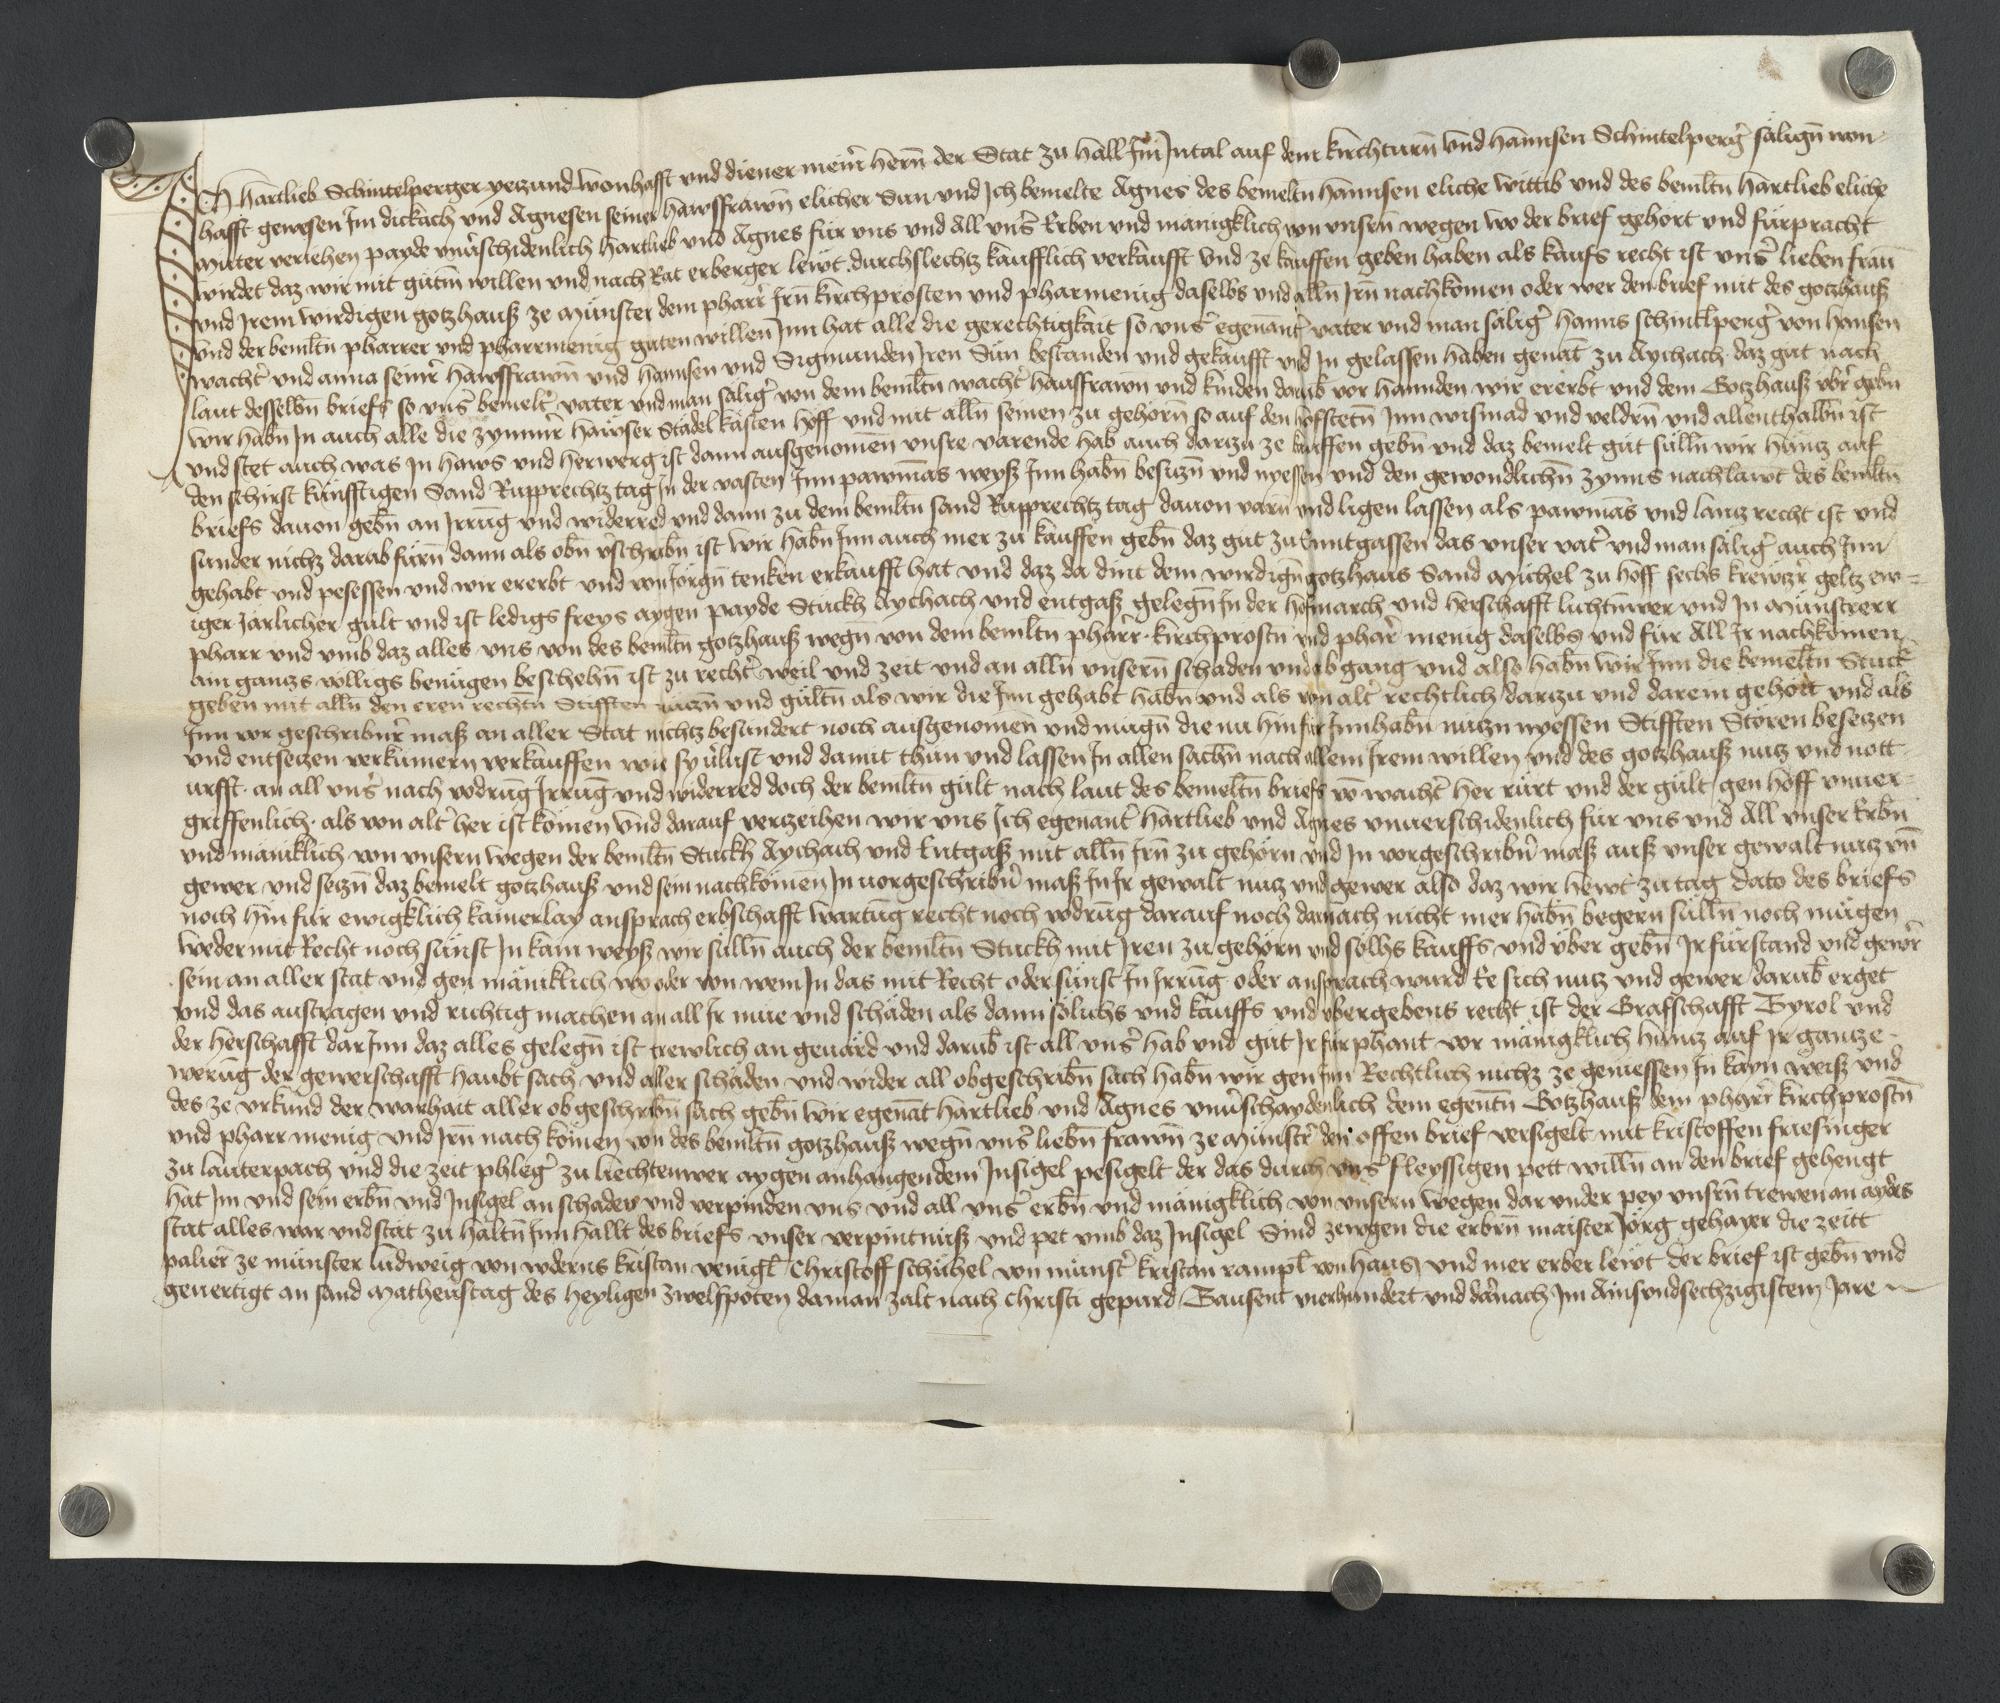 Ich hartlieb Schintelperger yetzund wonhafft und diener meinr̃ herrn der Stat zu hall Im Intal auf dem kirchturn̄ und hannsen Schintelperg̃ säligñ won
hafft gewesen Im dickach und Agnesen seiner hawsffrawn̄ elicher Sun und Ich bemelte Agnes des bemeltn̄ hannsen eliche wittib und des bemltn̄ hartlieb eliche
muter veriehen payde vnũschidenlich hartlieb und Agnes für uns und All unsr̃ Erben und manigklich von unsern̄ wegen wo der brief gehört und fürpracht
wirdet daz wir mit gutm̄ willen und nach Rat erberger lewt durchslechtz kaufflich verkaufft und ze kauffen geben haben als kaufs recht ist unsr̃ lieben frau̅
und Irem wirdigen gotzhauß ze Münster dem pharr̃ Irn̄ kirchprosten und pharmenig daselbs und alln̄ Irn̄ nachkomen oder wer den brief mit des gotzhauß
und der bemltn̄ pharrer und pharrmenig guten willen Inn hat alle die gerechtigkait so unsr̃ egenantr̃ vater und man säligr̃ hanns schintlpergr̃ von hansen
wachtr̃ und anna seinr̃ hawsffrawn̄ und hannsen und Sigmunden Iren Sün bestanden und gekaufft und In gelassen haben genāt zu Aychach daz gut nach
laut desselbn̄ briefs so unsr̃ bemeltr̃ vater und man säligr̃ von dem bemltn̄ wachtr̃ hausffrawn̄ und kinden darub̄ vor hannden wir ererbt und dem Gotzhauß ubr̃ gebn̄
wir habn̄ In auch alle die zymmr̃ hawser Stadel kasten hoff und mit alln̄ seinen zu gehorn̄ so auf den hofstetn̄ Inn wismad und veldrn̄ und allenthalbn̄ ist
und stet auch was In haws und herwerg ist dann ausgenomen unsre varende hab auch darzu ze kauffen gebn̄ und daz bemelt gut sulln̄ wir huntz auf
den schirst künfftigen Sand Rupprechtz tag In der vasten Inn pawmās weyß Inn habn̄ besitzn̄ und nyessen und den gewondlichn̄ zynns nach lawt des bemltn̄
briefs dauon gebn̄ an Irrūg und widerred und dann zu dem bemltn̄ sand Rupprechtz tag dauon varn̄ und ligen lassen als pawmās und lantz recht ist und
sunder nichtz darab fürn̄ dann als obn̄ vr̃schribn̄ ist wir habn̄ Inn auch mer zu kauffen gebn̄ daz gut zu Enntgassen das unser vatr̃ und man säligr̃ auch Inn
gehabt und pesessen und wir ererbt und von Jörgn̄ tenken erkaufft hat und daz da dint dem wirdign̄ gotzhaus Sand Michel zu hoff sechs krewtzr̃ geltz ew=
iger järlicher gult und ist ledigs freys aygen payde Stuckh Aychach und entgaß gelegn̄ In der hofmarch und herschafft liechtnwer und In Münstrerr
pharr und umb daz alles uns von des bemltn̄ gotzhauß wegn̄ von dem bemltn̄ pharr̃ kirchprostn̄ und pharr̃ menig daselbs und für All Ir nachkomen
ain gantzs völligs benügen beschehn̄ ist zu rechtr̃ weil und zeit und an alln̄ unsern̄ schaden und abgang und also habn̄ wir Inn die bemeltn̄ Stuck
geben mit alln̄ den eren rechtn̄ Stifften nützn̄ und gültn̄ als wir die Inn gehabt habn̄ und als von altr̃ rechtlich darzu und darein gehört und als
Inn vor geschribnr̃ maß an aller Stat nichtz besündert noch ausgenomen und mügn̄ die nu hinfür Innhabn̄ nutzn nyessen Stifften Stören besetzen
und entsetzen verkümern verkauffen wie sy vr̃lust und damit thun und lassen In allen sachn̄ nach allem Irem willen und des gotzhauß nutz und nott
urfft an all unsr̃ nach vodrūg Irrūg und widerred doch der bemltn̄ gült nach laut des bemeltn̄ briefs vō wachtr̃ her rürt und der gült gen hoff vnuer=
griffenlich als von altr̃ her ist komen und darauf vertzeihen wir uns Ich egenantr̃ hartlieb und Agnes vnuerschidenlich für uns und All unser Erbn̄
und mäniklich von unsern wegen der bemltn̄ Stuckh Aychach und Entgaß mit alln̄ Irn̄ zu gehorn und In vorgeschribnr̃ maß auß unser gewalt nutz un̄
gewer und setzn̄ daz bemelt gotzhauß und sein nachkomen In uorgeschribnr̃ maß In Ir gewalt nutz und gewer also daz wir hewt zu tag dato des briefs
noch hin für ewigklich kainerlay ansprach erbschafft wartūg recht noch vodrūg darauf noch darnach nicht mer habn̄ begern sülln̄ noch mügen
weder mit Recht noch sünst In kain weyß wir sülln̄ auch der bemltn̄ Stuckh mit Iren zu gehörn und sölhs kauffs und über gebn̄ Ir fürstand und gewr̃
sein an aller stat und gen mäniklich wo oder von wem In das mit Recht oder sünst In Irrūg oder ansprach wurd Ee sich nutz und gewer darub̄ erget
und das austragen und richtig machen an all Ir mue und schäden als dann sölichs und kauffs und übergebens recht ist der Grafschafft Tyrol und
der herschafft dar Inn daz alles gelegn̄ ist trewlich an geuärd und darub̄ ist all unsr̃ hab und gut Ir fürphant vor mänigklich huntz auf Ir gantze
werūg der gewerschafft haubt sach und aller schäden und wider all obgeschribn̄ sach habn̄ wir gen Inn Rechtlich nichtz ze geniessen In kayn weiß und
des ze urkund der warhait aller ob geschribn̄ sach gebn̄ wir egenāt hartlieb und Agnes vnuschaydenlich dem egentn̄ Gotzhauß dem pharr̃ kirchprostn̄
und pharr menig und Irn̄ nach komen von des bemltn̄ gotzhauß wegn̄ unsr̃ liebn̄ frawn̄ ze Münstr̃ den offen brief versigelt mit kristoffen friesinger
zu lauterpach und die zeit phlegr̃ zu liechtenwer aygen anhangendem Insigel pesigelt der das durch unsr̃ fleyssigen pett willn̄ an den brief gehengt
hat Im und sein erbn̄ und Insigel an schaden und verpinden uns und all unsr̃ erbn̄ und mänigklich von unsern wegen dar under pey unsrn̄ trewen an aydes
stat alles war und stät zu haltn̄ Inn hallt des briefs unser verpintnuß und pet umb daz Insigel Sind zewgen die erbrn̄ maister Jörg gehayer die zeitt
palier̃ ze münster ludweig von vderns kristan venigl Christoff schühel von münstr̃ kristan rampl von haus und mer erber lewt der brief ist gebn̄ und
geuertigt an sand Matheustag des heyligen zwelfpoten da man zalt nach Christi gepurd Tausent vierhundert und dar̃nach Im Ainsundsechzigistem Jare